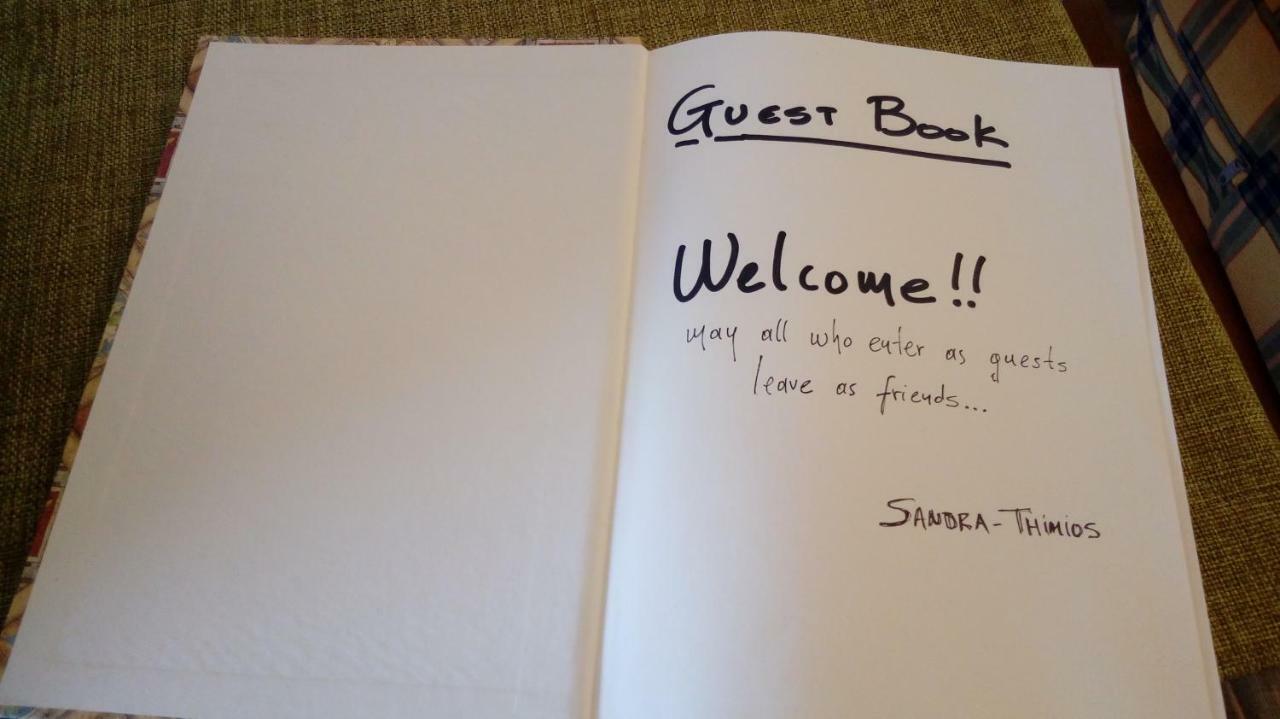 Guest Book
Welcome!!
may all who enter as guests
leave as friends...
Sandra-Thimios